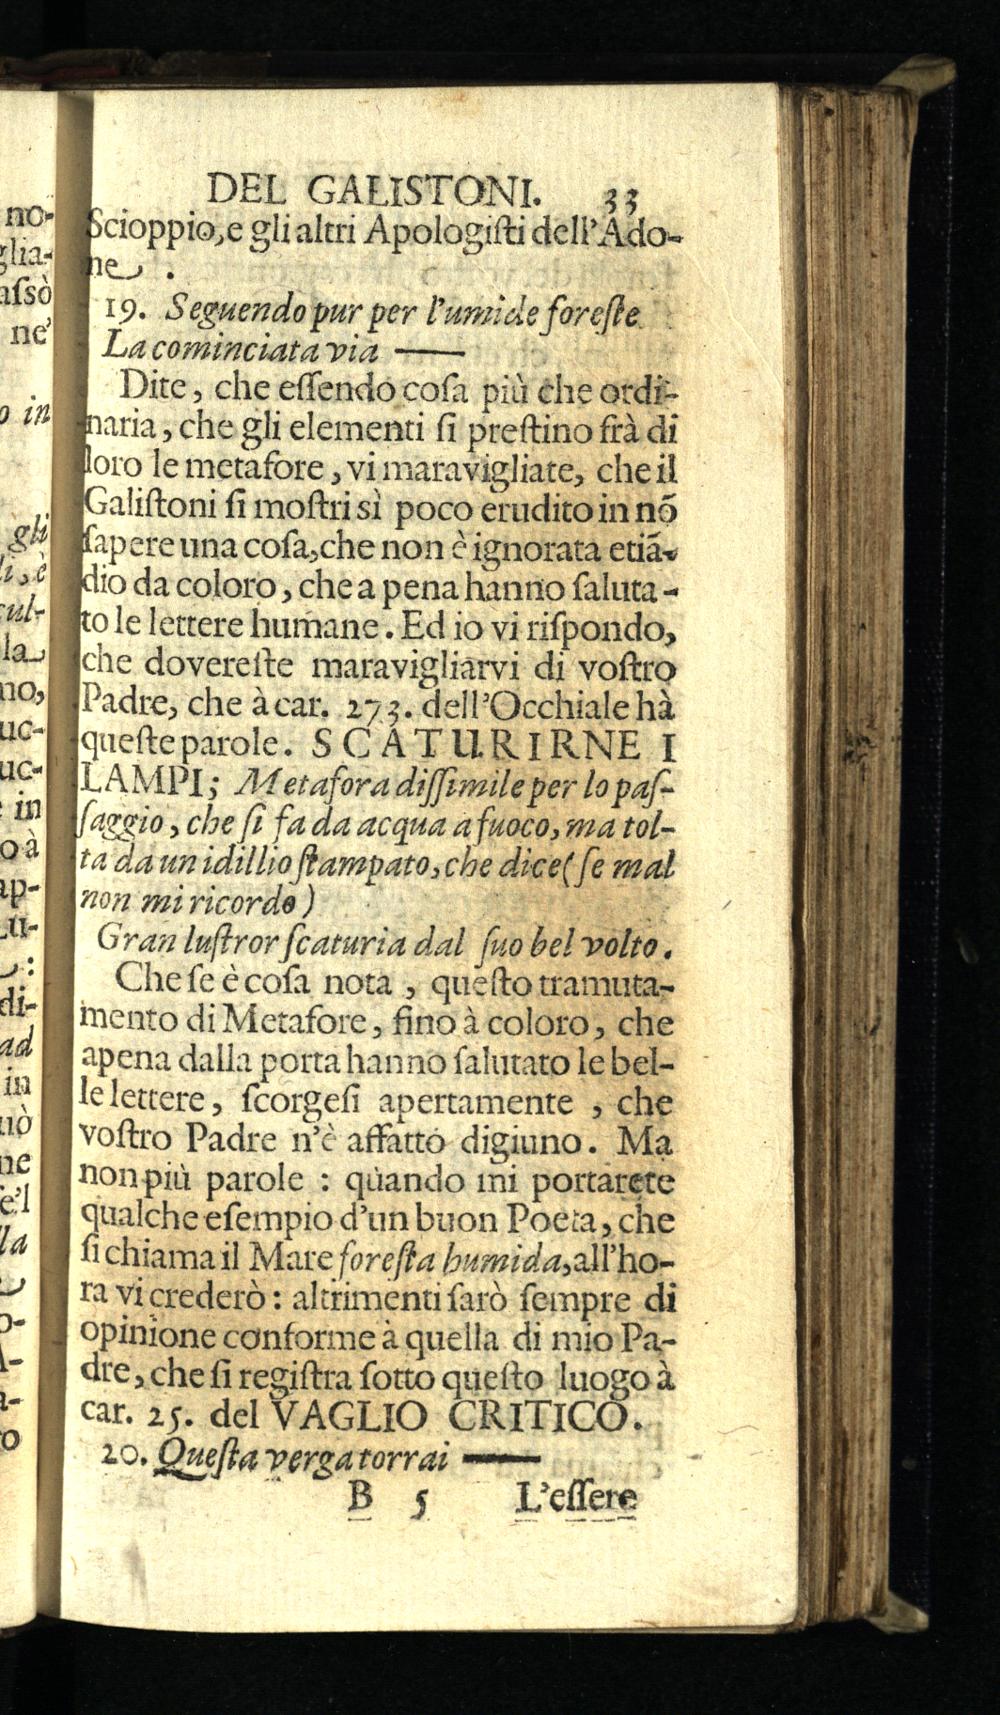 DEL GALISTONI. 33
Scioppio, e gli altri Apologiſti dell'Ado-
ne .
19. Seguendo pur per l'umide foreſte
La cominciata via ——
Dite, che eſſendo coſa più che ordi-
naria, che gli elementi ſi preſtino frà di
loro le metafore, vi maravigliate, che il
Galiſtoni ſi moſtri sì poco erudito in nõ
ſapere una coſa, che non è ignorata etiã-
dio da coloro, che a pena hanno ſaluta-
to le lettere humane. Ed io vi riſpondo,
che dovereſte maravigliarvi di voſtro
Padre, che à car. 273. dell'Occhiale hà
queſte parole. SCATURIRNE I
LAMPI; Metafora diſſimile per lo paſ-
ſaggio, che ſi fa da acqua a fuoco, ma tol-
ta da un idillio ſtampato, che dice (ſe mal
non mi ricordo)
Gran luſtror ſcaturia dal ſuo bel volto.
Che ſe è coſa nota, queſto tramuta-
mento di Metafore, fino à coloro, che
apena dalla porta hanno ſalutato le bel-
le lettere, ſcorgeſi apertamente, che
voſtro Padre n'è affatto digiuno. Ma
non più parole: quando mi portarete
qualche eſempio d'un buon Poeta, che
ſi chiama il Mare foreſta humida, all'ho-
ra vi crederò: altrimenti ſarò ſempre di
opinione conforme à quella di mio Pa-
dre, che ſi regiſtra ſotto queſto luogo à
car. 25. del VAGLIO CRITICO.
20. Queſta verga torrai ——
B 5 L'eſſere